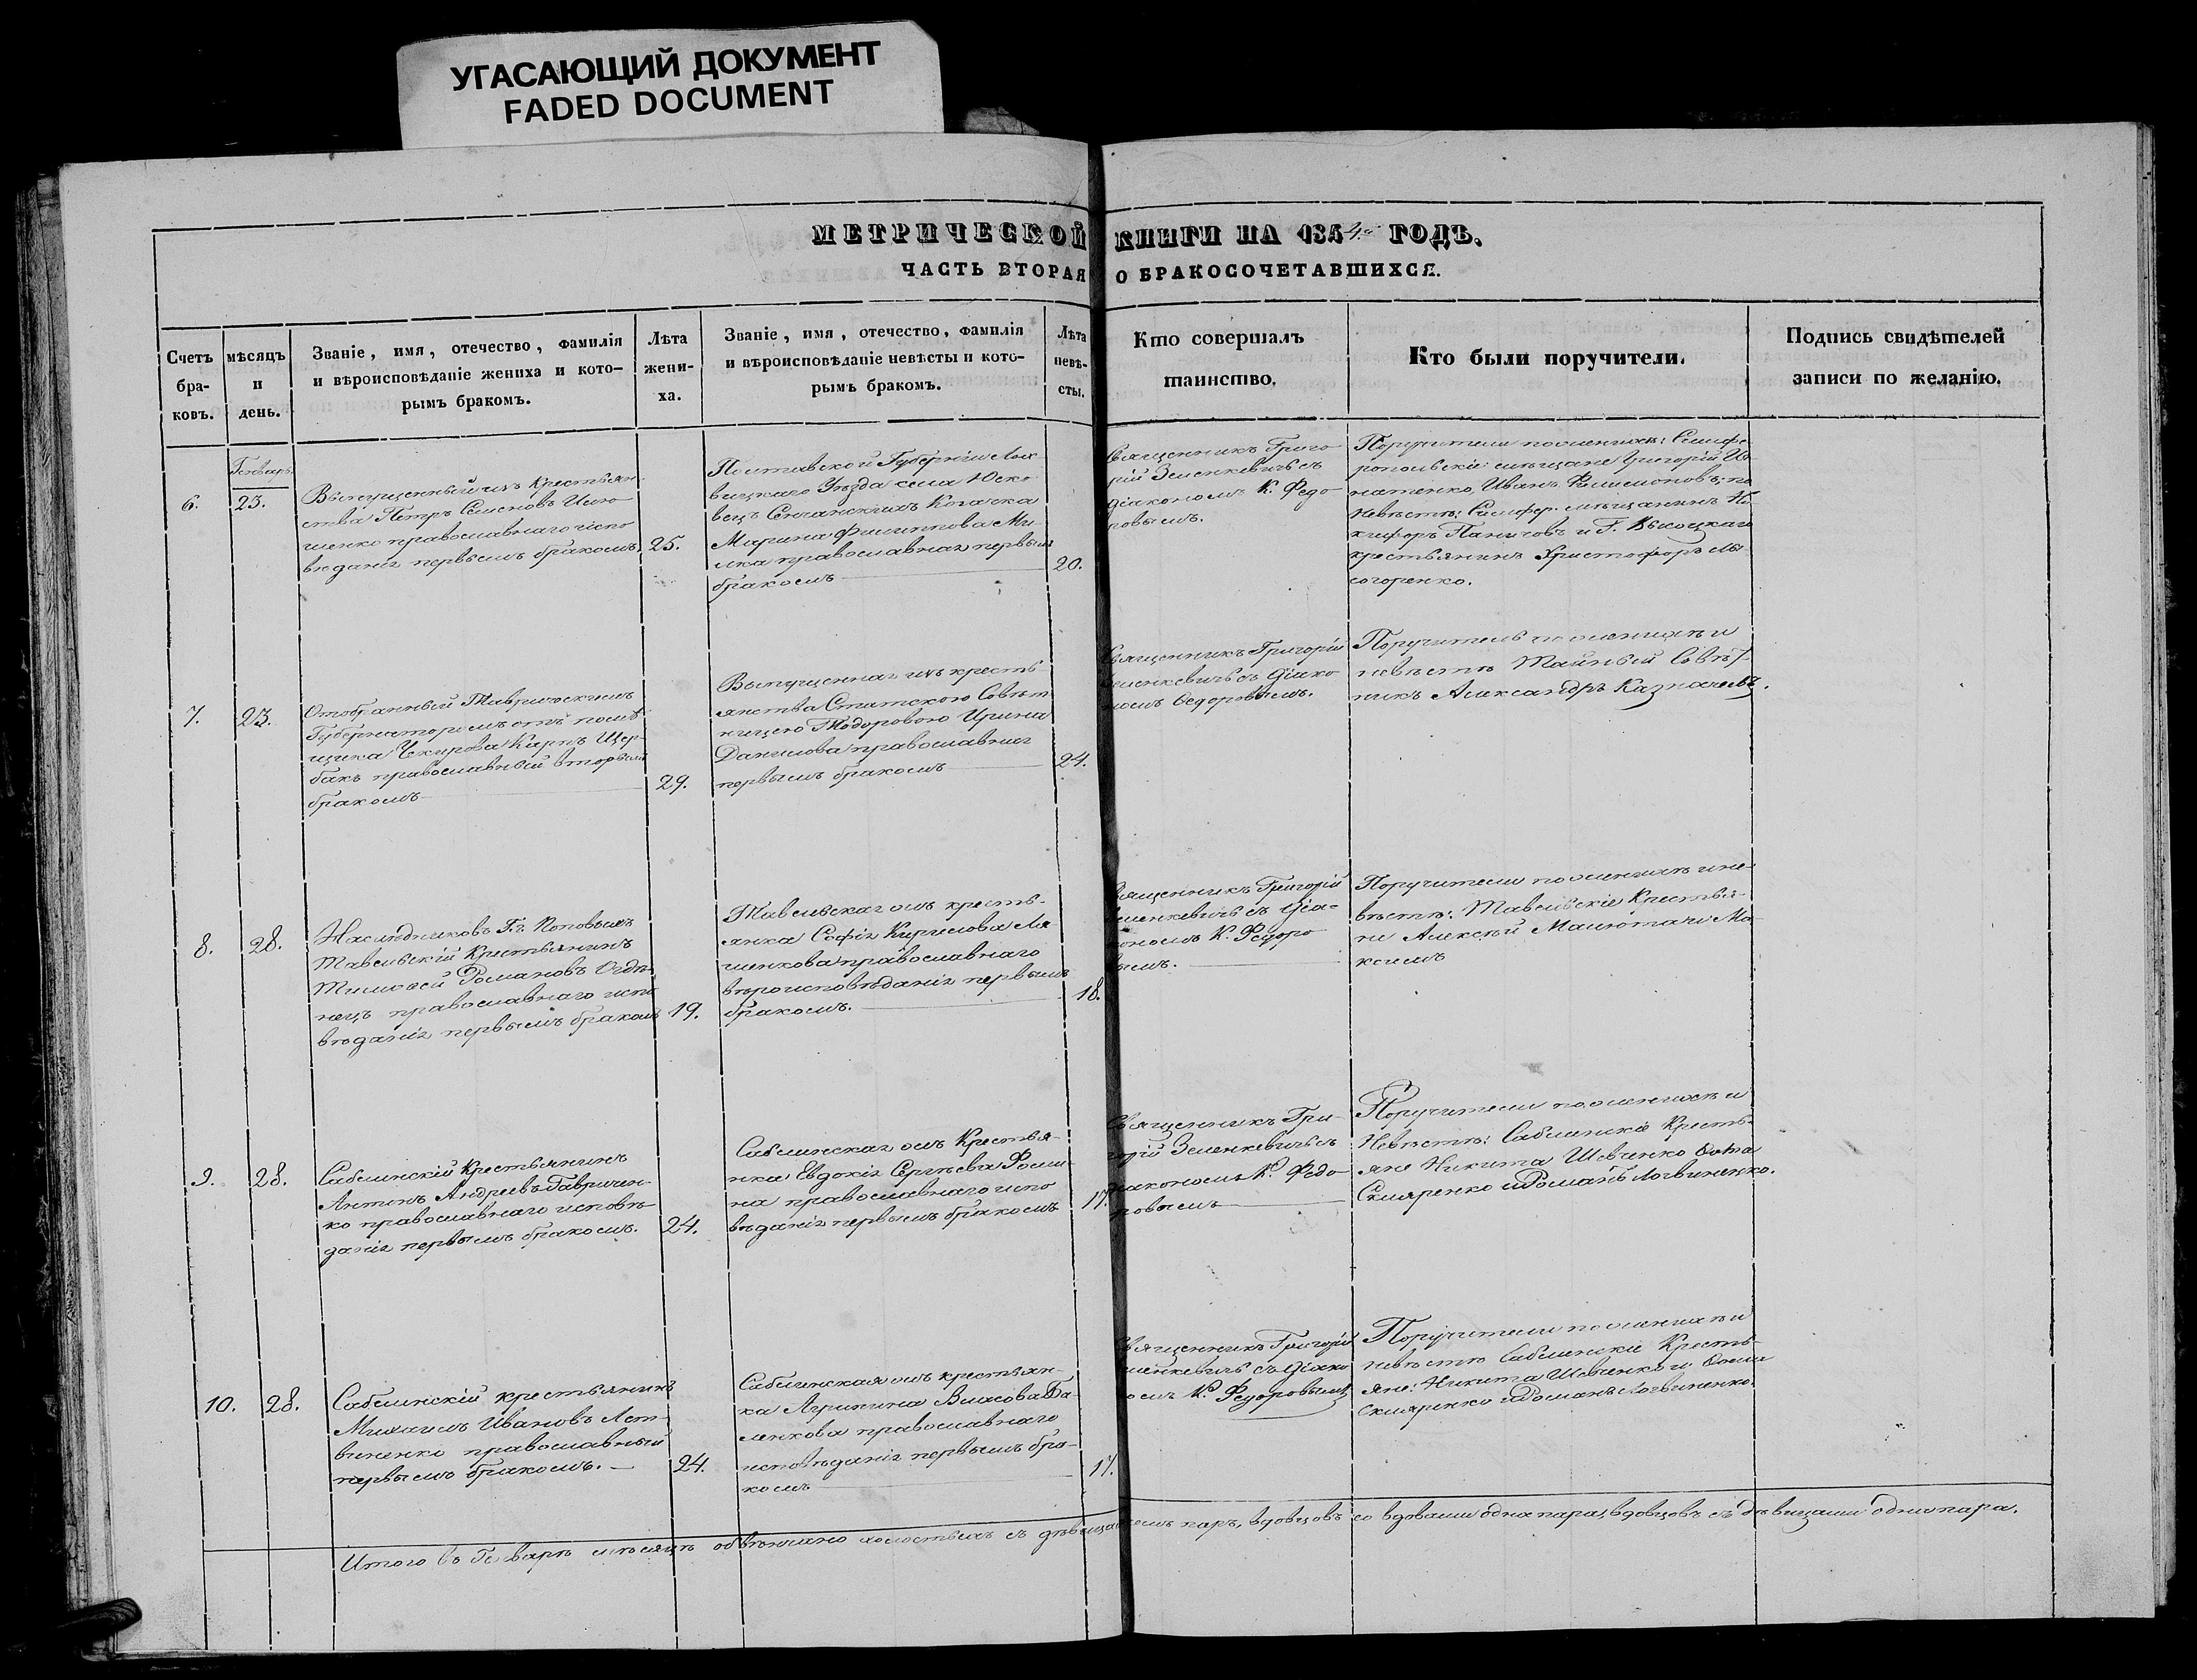 УГАСАЮЩИЙ ДОКУМЕНТ
FADED DOCUMENT
МЕТРИЧЕСКОЙ КНИГИ НА 1854й ГОДЪ.
ЧАСТЬ ВТОРАЯ О БРАКОСОЧЕТАВШИХСЯ.
Счетъ
бра-
ковъ.
мѣсяцъ
и
день.
Званіе, имя, отечество, фамилія
и вѣроисповѣданіе жениха и кото-
рымъ бракомъ.
Лѣта
жени-
ха.
Званіе, имя, отечество, фамилія
и вѣроисповѣданіе невѣсты и кото-
рымъ бракомъ.
Лѣта
невѣ-
сты.
Кто совершалъ
таинство.
Кто были поручители.
Подпись свидѣтелей
записи по желанію.
Генварь
6.
23.
Выпущенный изъ крестьян-
ства Петръ Семеновъ
православнаго испо
вѣданія первымъ бракомъ
25.
Полтавской Губерніи Лох
вицкаго Уѣзда села Юско
вецъ Сенчанскихъ Козачка
Марина Филиппова
православная первым
бракомъ
20.
Священникъ Григо
рій Зеленкевичь съ
діакономъ К. Федо
ровымъ.
Поручители по женихѣ: Симфе
ропольскіе мѣщане Григорій Иг
натенко, Иванъ Филимоновъ; по
Невѣстѣ: Симфер. мѣщанинъ Ни
кифоръ Паничовъ и Г. Высоцкаго
крестьянинъ Христофоръ Лы
согоренко.
7.
23.
Отобранный Таврическимъ
Губернаторомъ отъ помѣ
щика Чекирова Карпъ Щер-
бакъ православный вторым
бракомъ
29.
Выпущенная изъ кресть-
янства Статскою Совѣт
ницею Тодоровою Ирина
Данилова православная
первымъ бракомъ
24.
Священникъ Григорій
Зеленкевичь съ діако
номъ Федоровымъ.
Поручитель по женихѣ и
невѣстѣ Тайный Совѣт-
никъ Александръ Казначеевъ.
8.
28.
Наслѣдниковъ Г.г. Поповыхъ
Тавельскій Крестьянинъ
Тимофей Романовъ
православнаго испо
вѣданія первымъ бракомъ
19.
Тавельская онъ кресть-
янка Софія Кирилова Ля
шенкова православнаго
вѣроисповѣданія первымъ
бракомъ.
18.
Священникъ Григорій
Зеленкевичь съ діа-
кономъ К. Федоро
вымъ.
Поручители по женихѣ и не-
вѣстѣ: Тавельскіе Крестья-
не Алексѣй Малюта и Ма-
ксимъ
9.
28.
Саблинскій Крестьянинъ
Антонъ Андреевъ Гавричен-
ко православнаго исповѣ
данія первымъ бракомъ.
24.
Саблинская онъ Крестья-
нка Евдокія Сергѣева Фоми-
на православнаго испо
вѣданія первымъ бракомъ
17.
Священникъ Гри-
горій Зеленкевичь съ
діакономъ К. Федо-
ровымъ
Поручители по женихѣ и
Невѣстѣ: Саблинскіе Кресть-
яне Никита Шевченко Фома
Скляренко и Романъ Логвиненко.
10.
28.
Саблинскій крестьянинъ
Михаилъ Ивановъ
православный
первымъ бракомъ.
24.
Саблинская онъ крестьян-
ка Агрипина Власова Ба-
ленкова православнаго
исповѣданія первымъ бра-
комъ
17.
Священникъ Григорій
Зеленкевичь съ діако
номъ К. Федоровымъ
Поручители по женихѣ и
невѣстѣ Саблинскіе Кресть-
яне: Никита Шевченко и Фома
Скляренко и Романъ Логвиненко.
Итого въ Генварѣ мѣсяцѣ обвѣнчано холостыхъ съ дѣвицами паръ, вдовцовъ со вдовами одна пара, вдовцовъ съ дѣвицами одна пара.